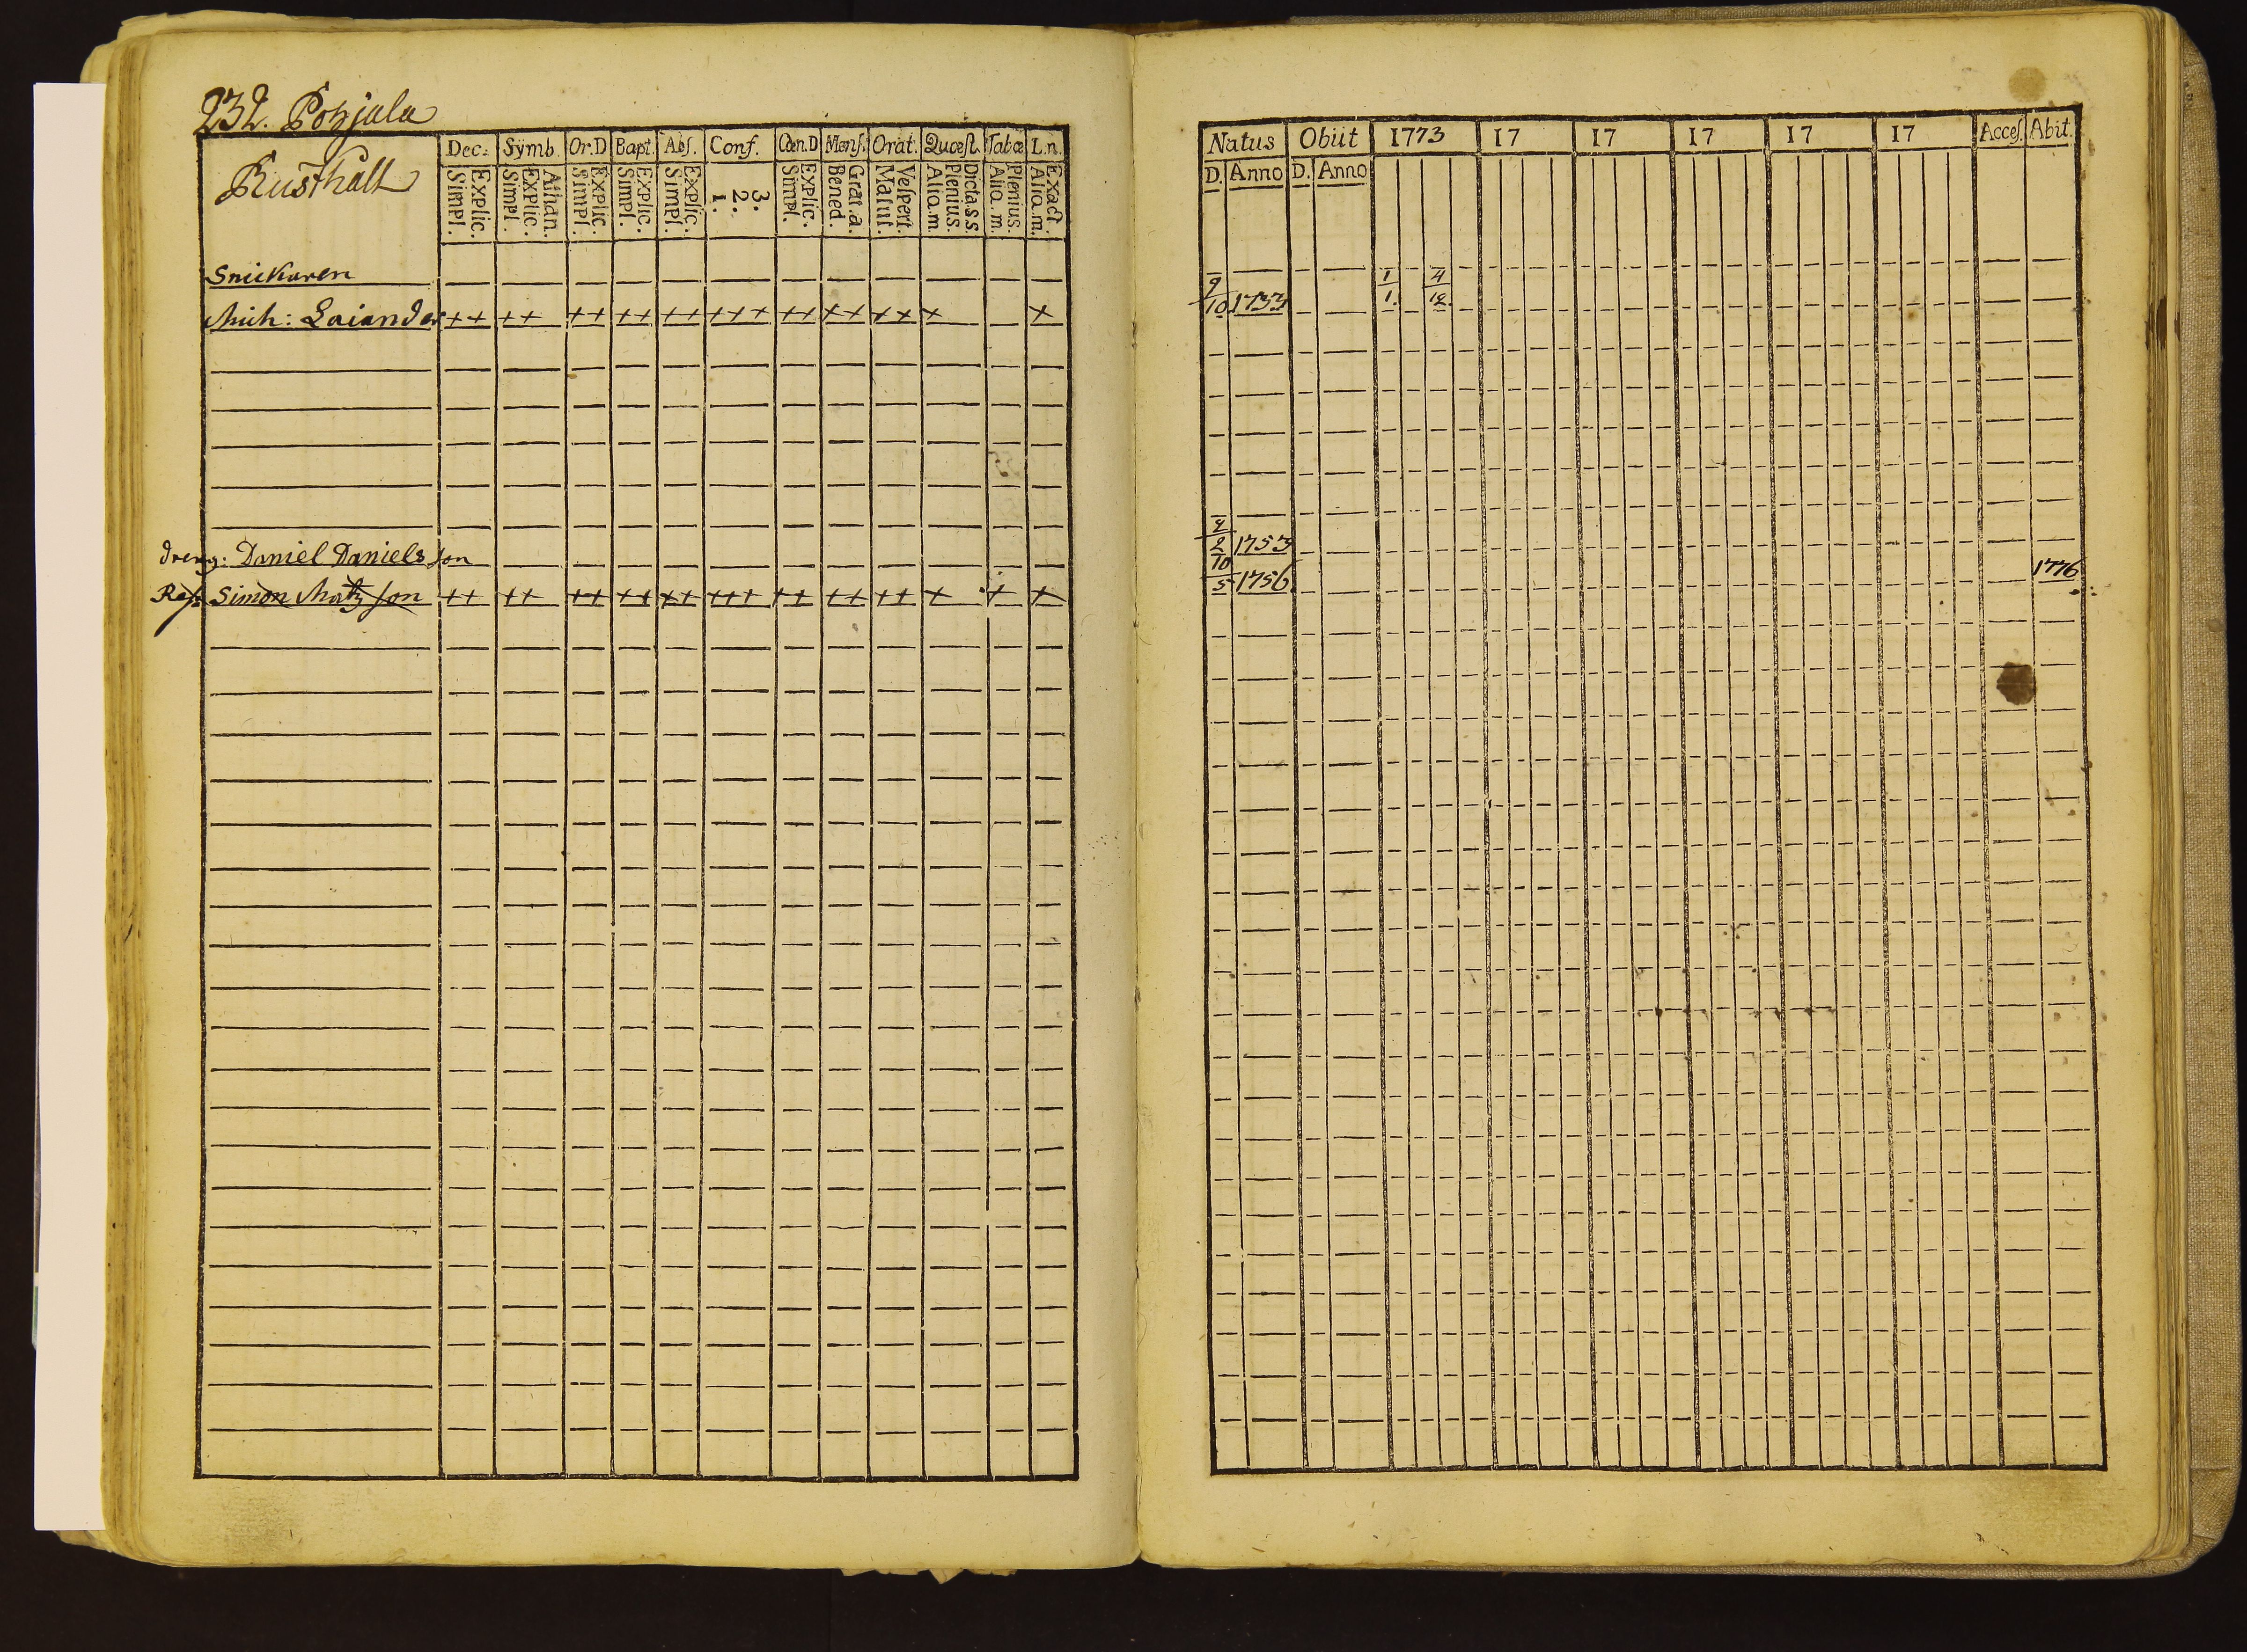 232. Pohjala
Rusthåll
Dec: Symb. Or.D Bapt. Abs. Conf. Cœn.D Mens. Orat. Quæst. Tabœ L.n.
Simpl. Explic. Simpl. Explic. Athan. Simpl. Explic. Simpl. Explic. Simpl. Explic. 1. 2. 3. Simpl. Explic. Bened. Grat.a. Matut. Vespert. Aliq.m. Plenius. Dicta.s.s. Aliq.m. Plenius. Aliq.m. Exact.
Snickaren
Mich: Laiander ++ ++ ++ ++ ++ +++ ++ ++ ++ + +
dreng: Daniel Danielsson
Simon Matzson ++ ++ ++ ++ ++ +++ ++ ++ ++ + + +
Natus Obiit 1773 17 17 17 17 17 Acces. Abit.
D. Anno D. Anno
9/10 1733 1/1. 4/12.
2 1753
10/5 1756 1776